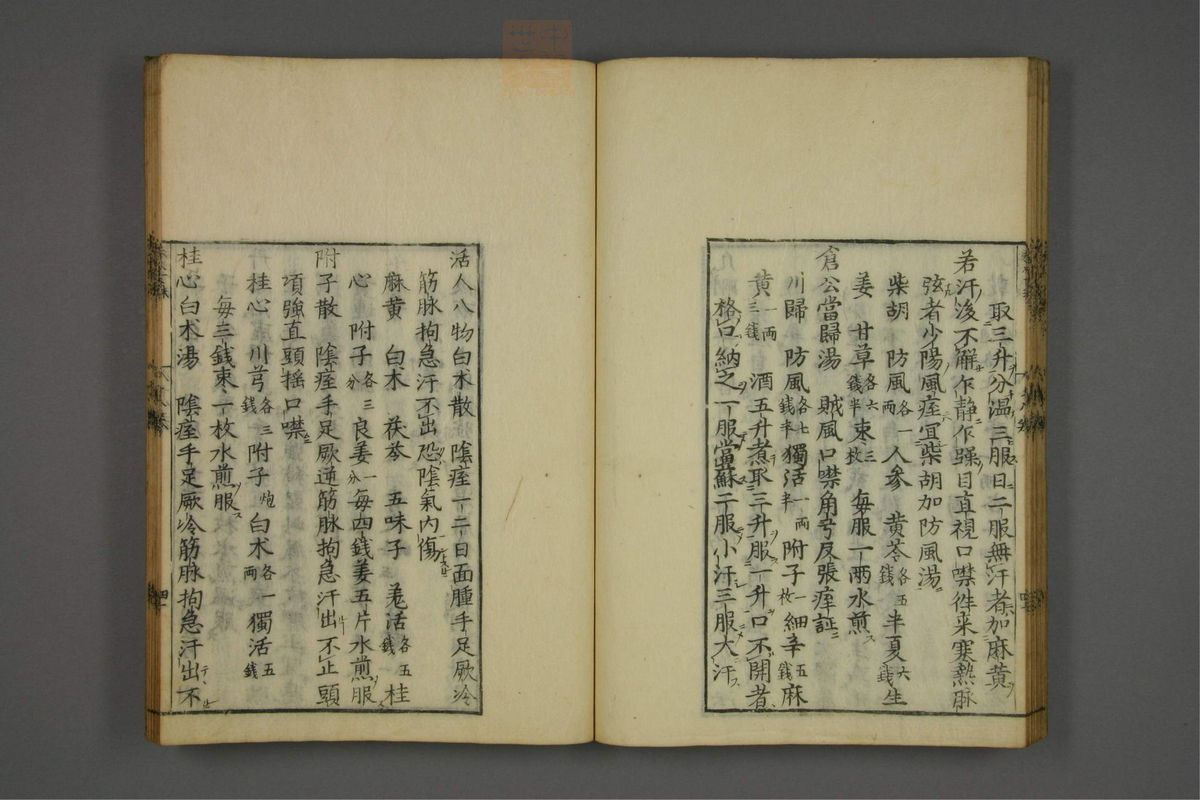 取三升分温三服日二服無汗者加麻黄
若汗後不解乍静乍躁目直視口噤徃来寒熱脉
弦者少陽風痓宜柴胡加防風湯
柴胡 防風各一両 人参 黄芩各五銭 半夏六銭 生
姜 甘草各六銭半 束三枚 毎服一両水煎
倉公當歸湯 賊風口噤角弓反張痓証
川歸 防風各七銭半 獨活一両半 附子一枚 細辛五銭 麻
黄一両三銭 酒五升煮取三升服一升口不開者
格口納之一服當蘇二服小汗三服大汗
活人八物白术散 陰痓一二日面腫手足厥冷
筋脉拘急汗不出恐陰氣内傷
麻黄 白术 茯苓 五味子 羗活各五銭 桂
心 附子各三分 良姜一分 毎四銭姜五片水煎服
附子散 陰痓手足厥逆筋脉拘急汗出不止頭
項強直頭揺口噤
桂心 川芎各三銭 附子炮 白术各一両 獨活五銭
毎三銭束一枚水煎服
桂心白术湯 陰痓手足厥冷筋脉拘急汗出不